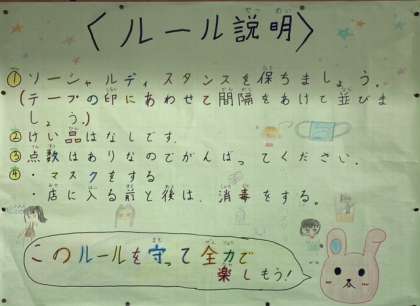 〈ルール説明〉
① ソーシャルディスタンスを保ちましょう。
(テープの印にあわせて間隔をあけて並びま
しょう。)
② けい品はなしです。
③ 点数はありなのでがんばってください。
④ ・マスクをする
・店に入る前と後は、消毒をする。
このルールを守って全力で
楽しもう!